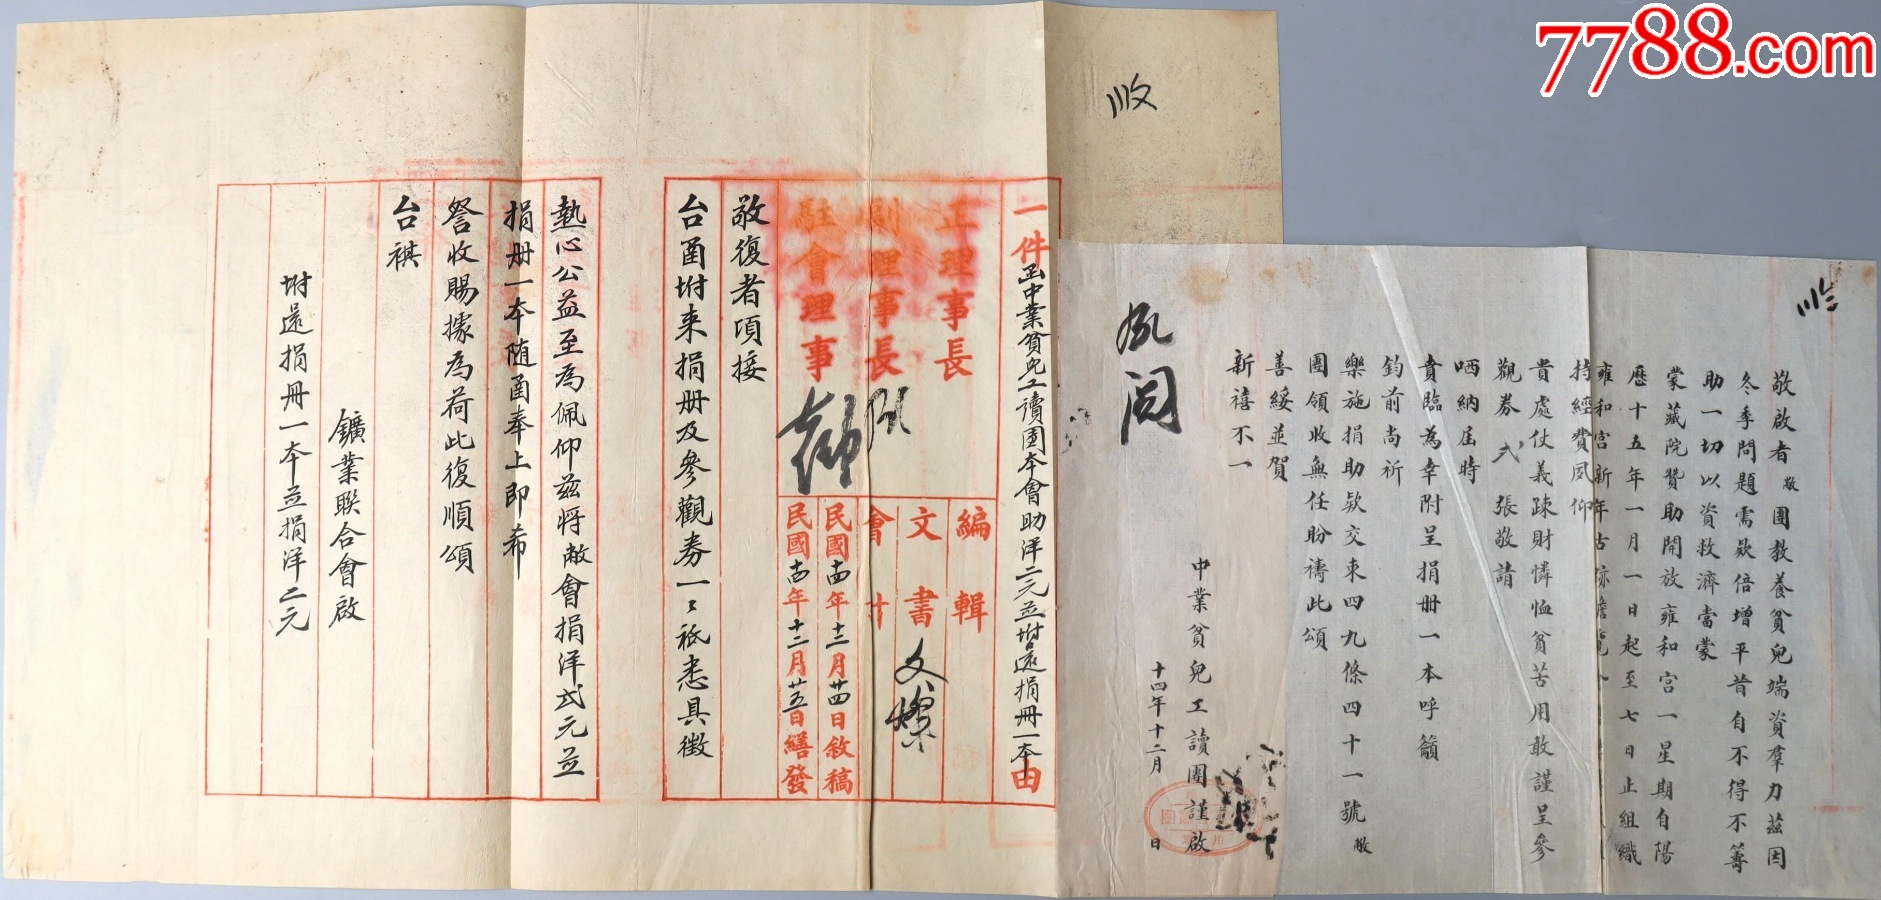 7788.com
敬啟者敝團教養貧兒端資羣力茲因
冬季問題需款倍增平昔自不得不籌
助一切以資救濟當蒙
蒙藏院贊助開放雍和宮一星期自陽
曆十五年一月一日起至七日止組織
雍和宮新年古
持經費夙仰
貴處仗義疎財憐恤貧苦用敢謹呈參
觀券弍張敬請
哂納屆時
賁臨為幸附呈捐册一本呼籲
鈞前尚祈
樂施捐助欵交東四九條四十一號敝
團領收無任盼禱此頌
善綏並賀
新禧不一
中業貧兒工讀團謹啟
十四年十二月 日
閱
一件函中業貧兒工讀團本會助洋二元並坿還捐册一本由
正理事長
副理事長
駐會理事
編輯
文書
會計
民國十四年十二月廿四日敘稿
民國十四年十二月廿五日繕發
敬復者頃接
台函坿來捐册及參觀券一一祇悉具徵
熱心公益至為佩仰茲將敝會捐洋弍元並
捐册一本隨函奉上即希
詧收賜據為荷此復順頌
台祺
鑛業聯合會啟
坿還捐册一本並捐洋二元